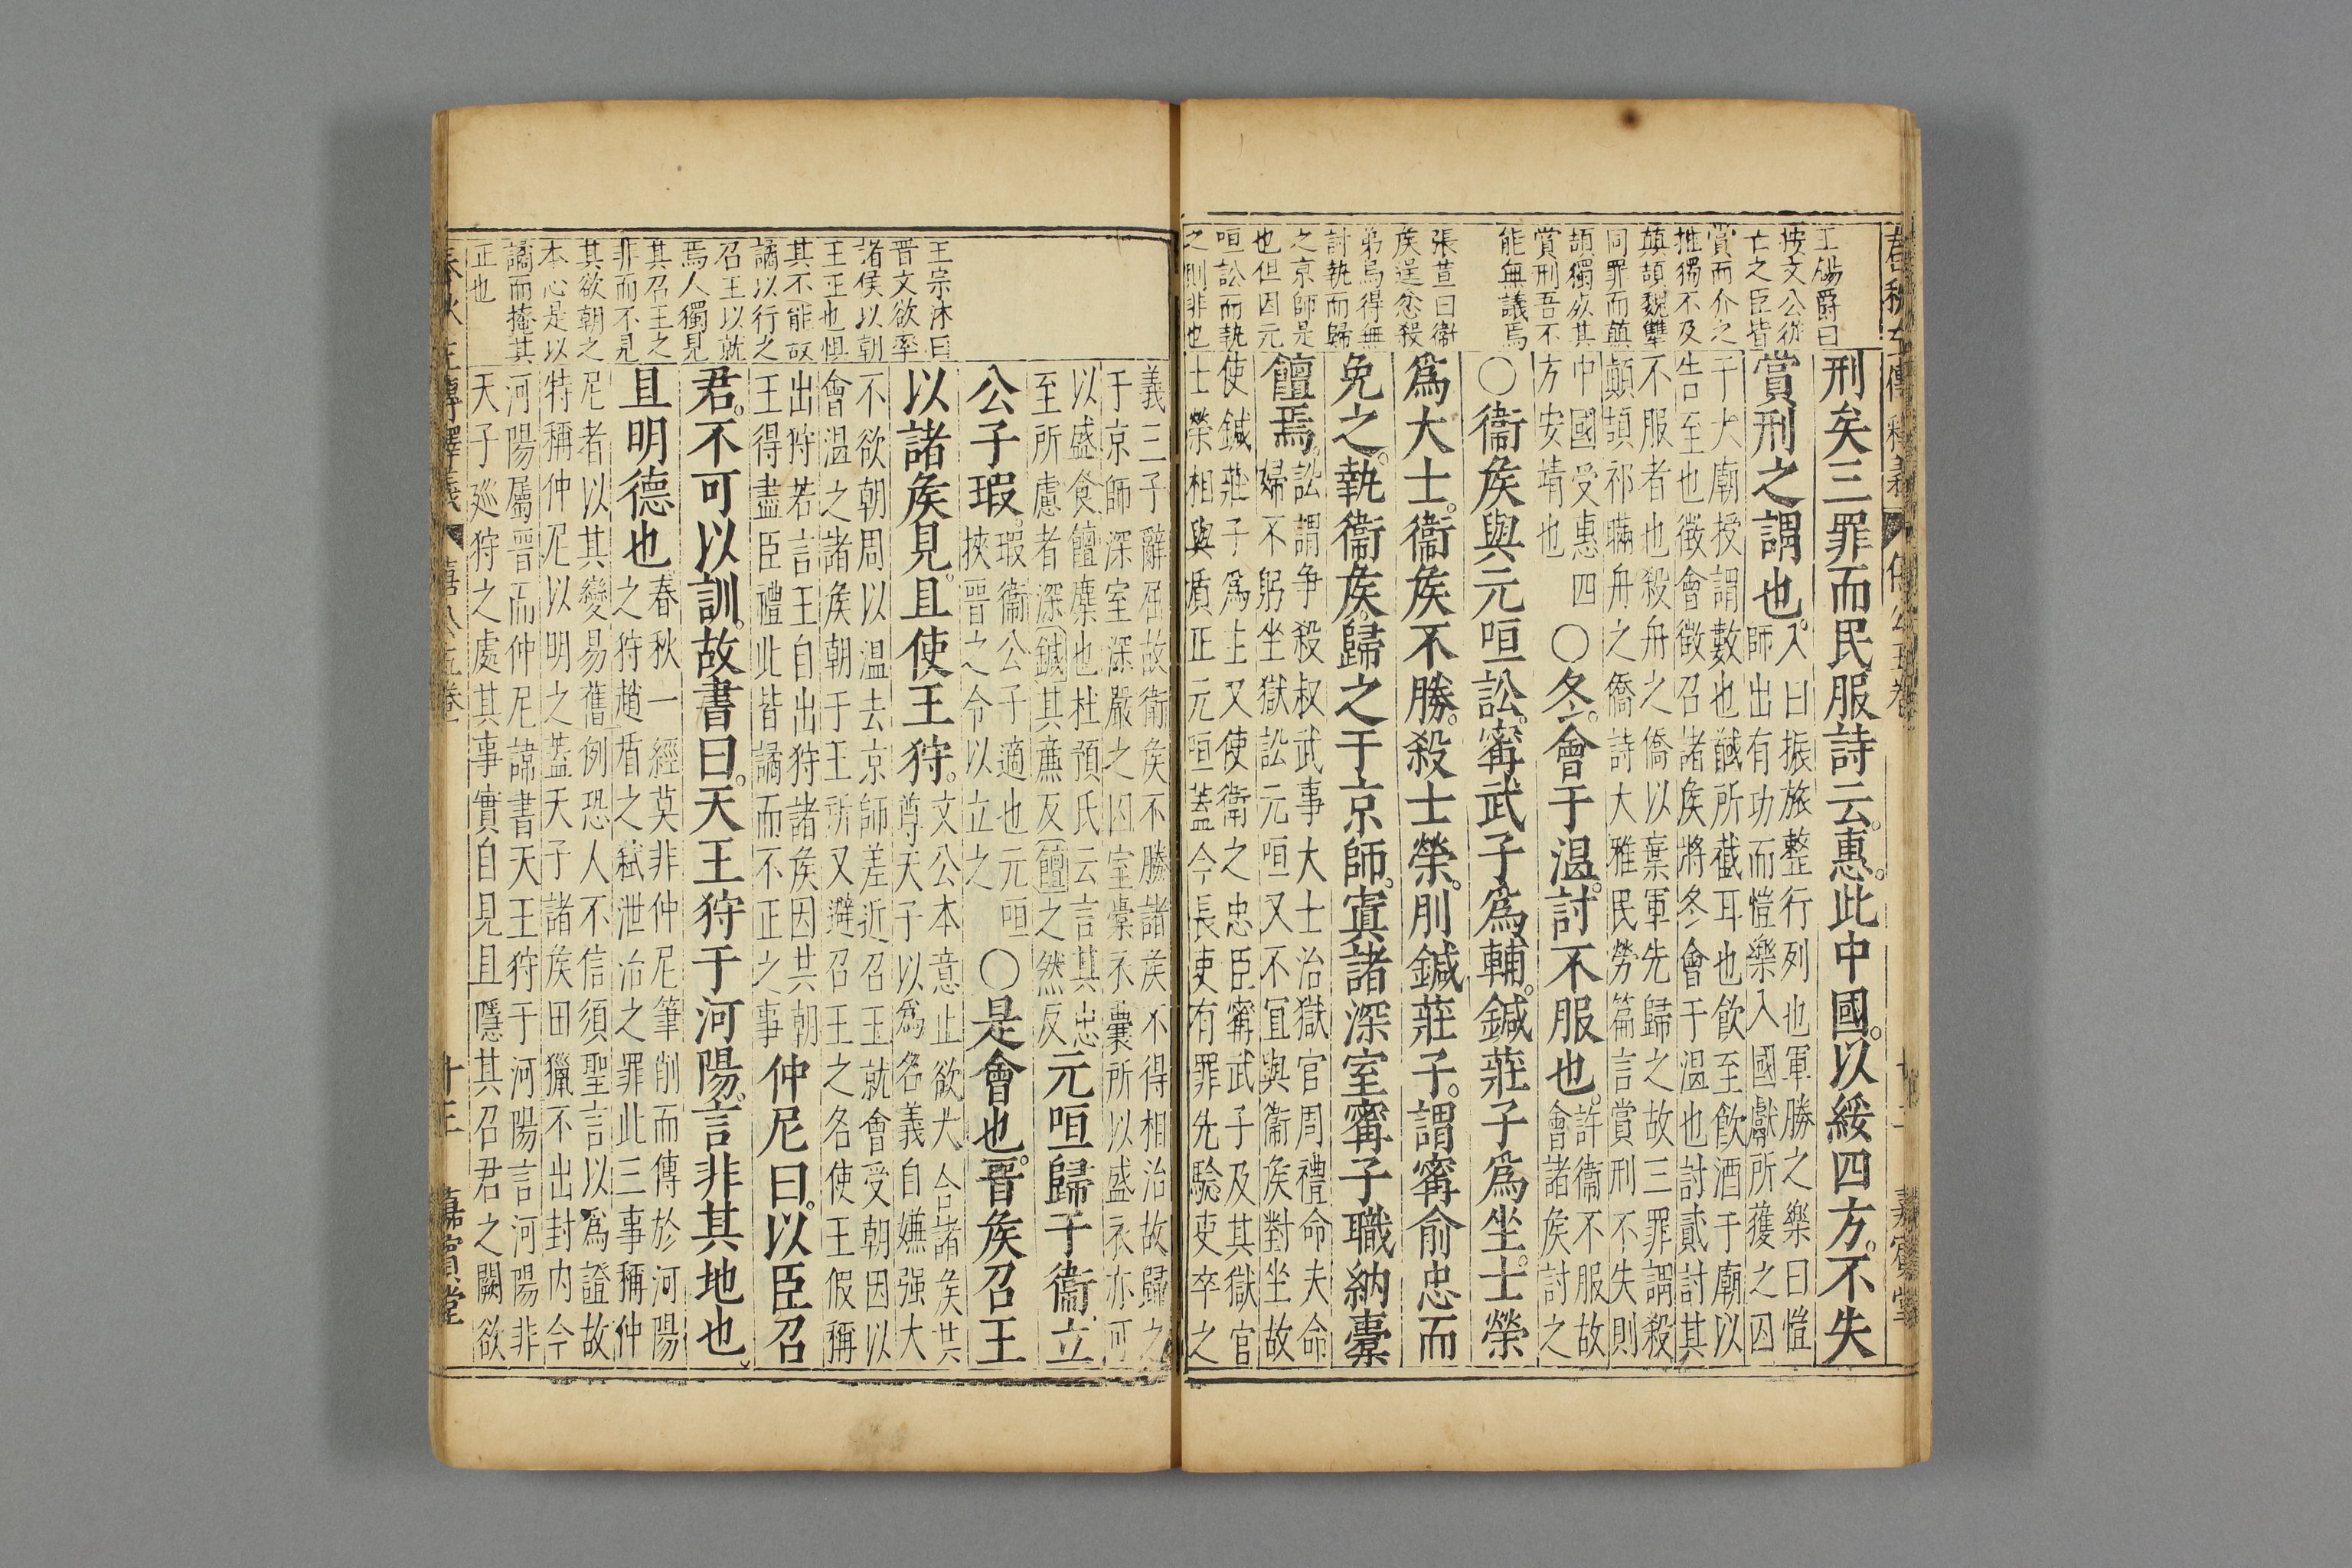 春秋左傳釋義 僖公五卷 十二 嘉賓堂
王錫爵曰
按文公從
亡之臣皆
賞而介之
推獨不及
顛頡魏犨
同罪而顛
頡獨其
賞刑吾不
能無議焉
張萱曰衞
矦逞忿殺
弟烏得無
討執而歸
之京師是
也但因元
咺訟而執
之則非也
刑矣三罪而民服詩云惠此中國以綏四方不失
賞刑之謂也
入曰振旅整行列也軍勝之樂曰愷
師出有功而愷樂入國獻所獲之囚
于大廟授謂數也馘所截耳也飲至飲酒于廟以
告至也徵會徵召諸矦將冬會于温也討貳討其
不服者也殺舟之僑以葉軍先歸之故三罪謂殺
顛頡祁瞞舟之僑詩大雅民勞篇言賞刑不失則
中國受惠四
方安靖也
〇冬會于温討不服也
許衞不服故
會諸矦討之
〇衞矦與元咺訟甯武子爲輔鍼莊子爲坐士榮
爲大士衞矦不勝殺士榮刖鍼莊子謂甯俞忠而
免之執衞矦歸之于京師寘諸深室甯子職納橐
饘焉
訟謂争殺叔武事大士治獄官周禮命夫命
婦不躬坐獄訟元咺又不宜與衞矦對坐故
使鍼莊子爲主又使衞之忠臣甯武子及其獄官
士榮相與質正元咺蓋今長吏有罪先驗吏卒之
義三子辭屈故衞矦不勝諸矦不得相治故歸之
于京師深室深嚴之囚室橐衣囊所以盛衣亦可
以盛食饘糜也杜預氏云言其忠
至所慮者深鍼其亷反饘之然反
元咺歸于衞立
公子瑕
瑕衞公子適也元咺
挾晋之令以立之
〇是會也晋矦召王
以諸矦見且使王狩
文公本意止欲大合諸矦共
尊天子以為名義自嫌强大
不欲朝周以温去京師差近召王就會受朝因以
會温之諸矦朝于王所又避召王之名使王假稱
出狩若言王自出狩諸矦因共朝
王得盡臣禮此皆譎而不正之事
仲尼曰以臣召
君不可以訓故書曰天王狩于河陽言非其地也
且明德也
春秋一經莫非仲尼筆削而傳於河陽
之狩趙盾之弒泄冶之罪此三事稱仲
尼者以其變易舊例恐人不信須聖言以爲證故
特稱仲尼以明之蓋天子諸矦田獵不出封内今
河陽屬晋而仲尼諱書天王狩于河陽言河陽非
天子廵狩之處其事實自見且隱其召君之闕欲
王宗沐曰
晋文欲率
諸侯以朝
王正也惧
其不能故
譎以行之
召王以就
焉人獨見
其召王之
非而不見
其欲朝之
本心是以
譎而掩其
正也
春秋左傳釋義 僖公五卷 十三 嘉賓堂